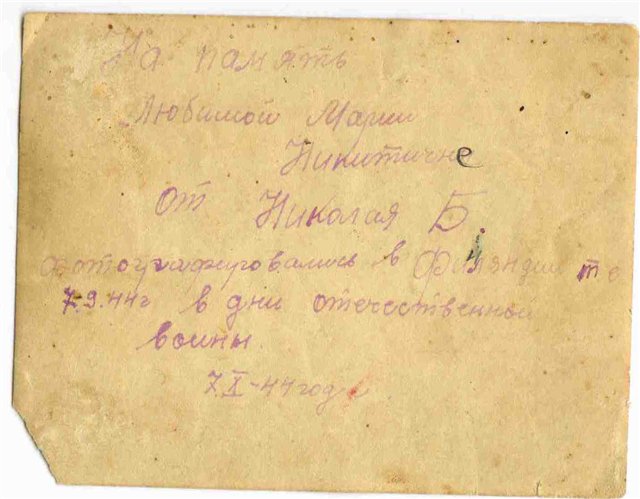 На память
Любимой Марии
Никитичне
От Николая Б.
Фотографировались в Финляндии
7.9.44г в дни отечественной
воины.
7.X-44 год